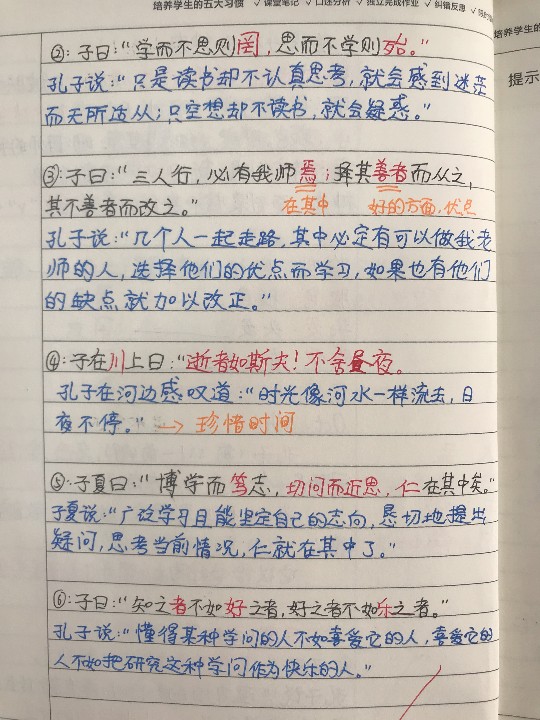 培养学生的五大习惯 ✓课堂笔记 ✓口述分析 ✓独立完成作业 ✓纠错反思
培养学生的五
提示
②:子曰:“学而不思则罔,思而不学则殆。”
孔子说:“只是读书却不认真思考,就会感到迷茫
而无所适从;只空想却不读书,就会疑惑。”
③:子曰:“三人行,必有我师焉;择其善者而从之,
其不善者而改之。” 在其中 好的方面,优点
孔子说:“几个人一起走路,其中必定有可以做我老
师的人,选择他们的优点而学习,如果也有他们
的缺点就加以改正。”
④:子在川上曰:“逝者如斯夫!不舍昼夜。
孔子在河边感叹道:“时光像河水一样流去,日
夜不停。” → 珍惜时间
⑤:子夏曰:“博学而笃志,切问而近思,仁在其中矣。”
子夏说:“广泛学习且能坚定自己的志向,恳切地提出
疑问,思考当前情况,仁就在其中了。”
⑥:子曰:“知之者不如好之者,好之者不如乐之者。”
孔子说:“懂得某种学问的人不如喜爱它的人,喜爱它的
人不如把研究这种学问作为快乐的人。”